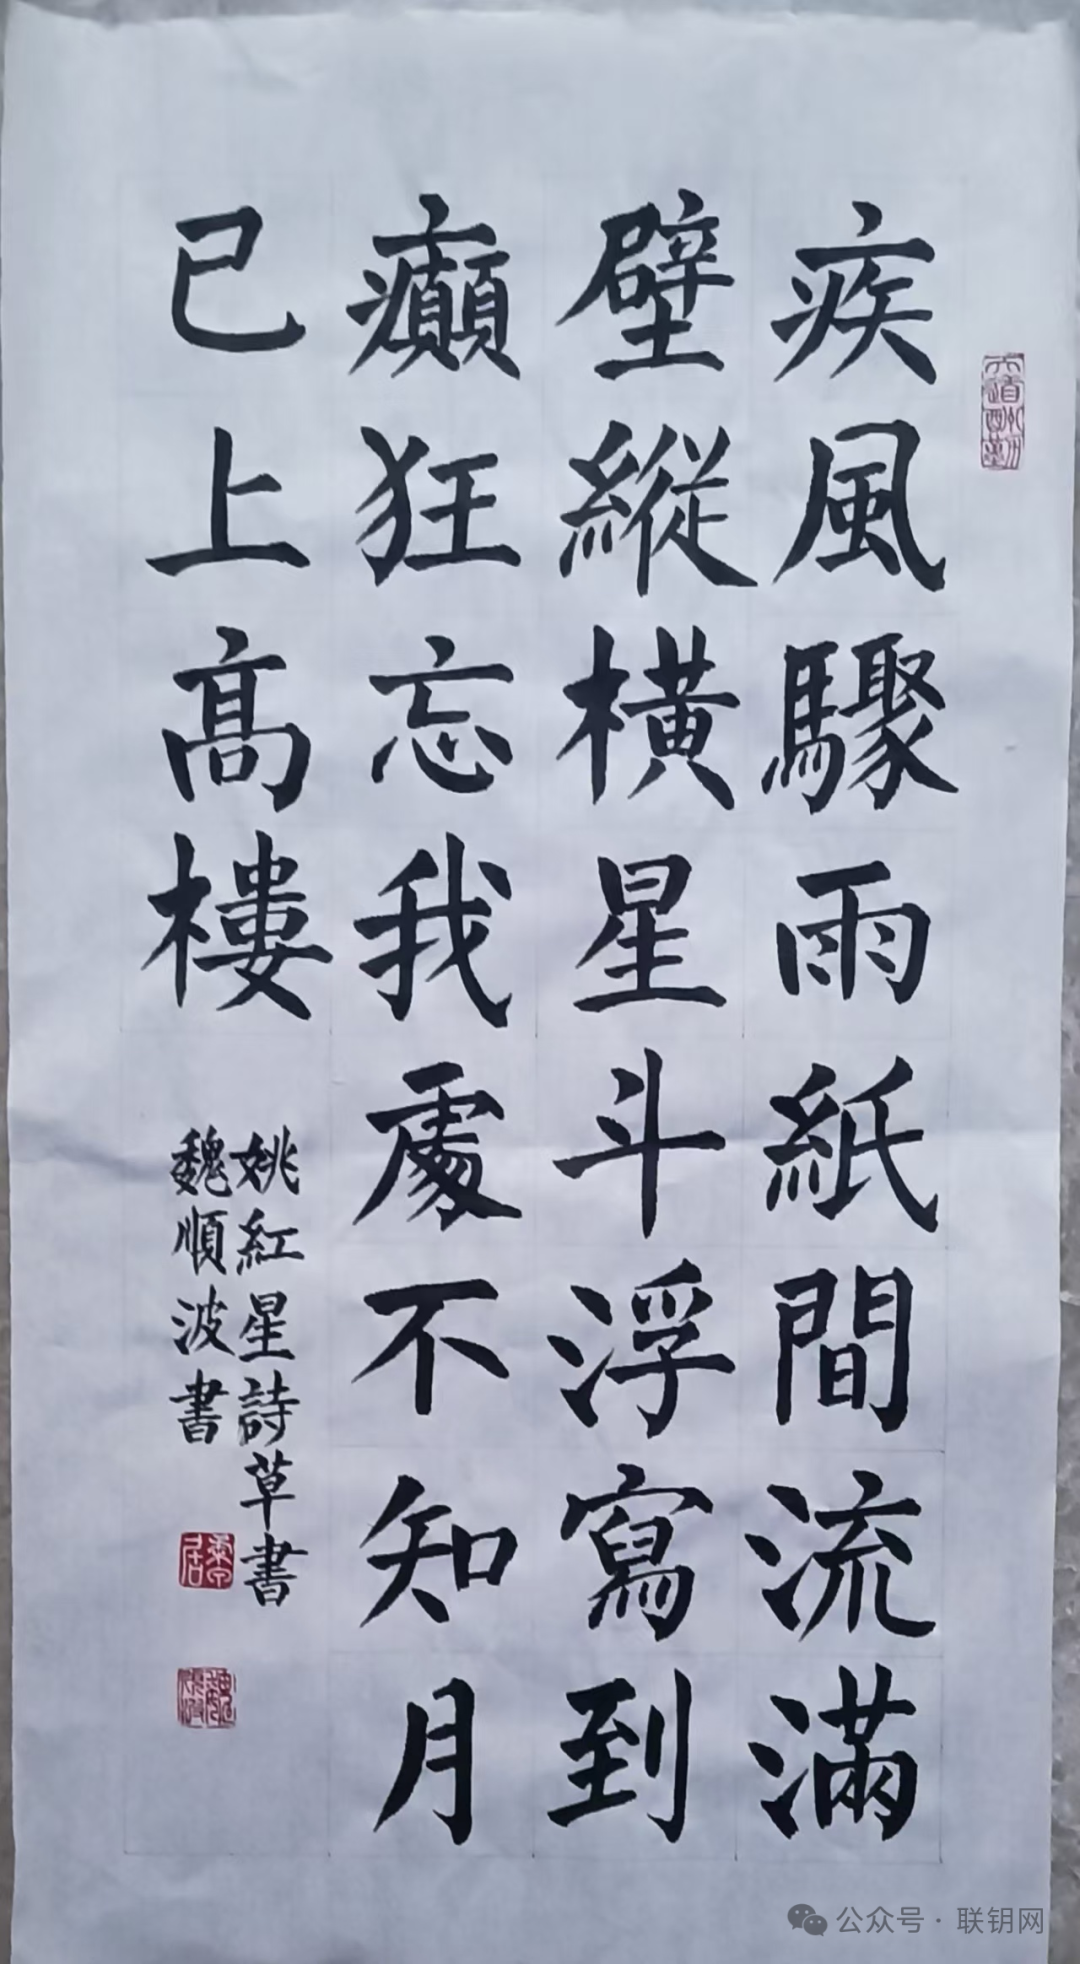 疾風驟雨紙間流滿
壁縱橫星斗浮寫到
癲狂忘我處不知月
已上高樓
姚紅星詩草書
魏順波書
公众号·联钥网